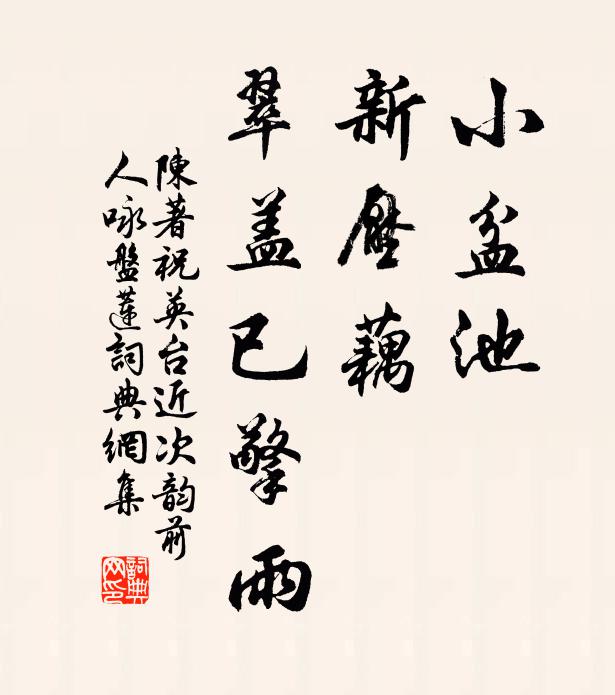 小盆池
新壓藕
翠盖已擎雨
陳著祝英台近次韵前
人咏盤蓮詞典網集
詞典
网印